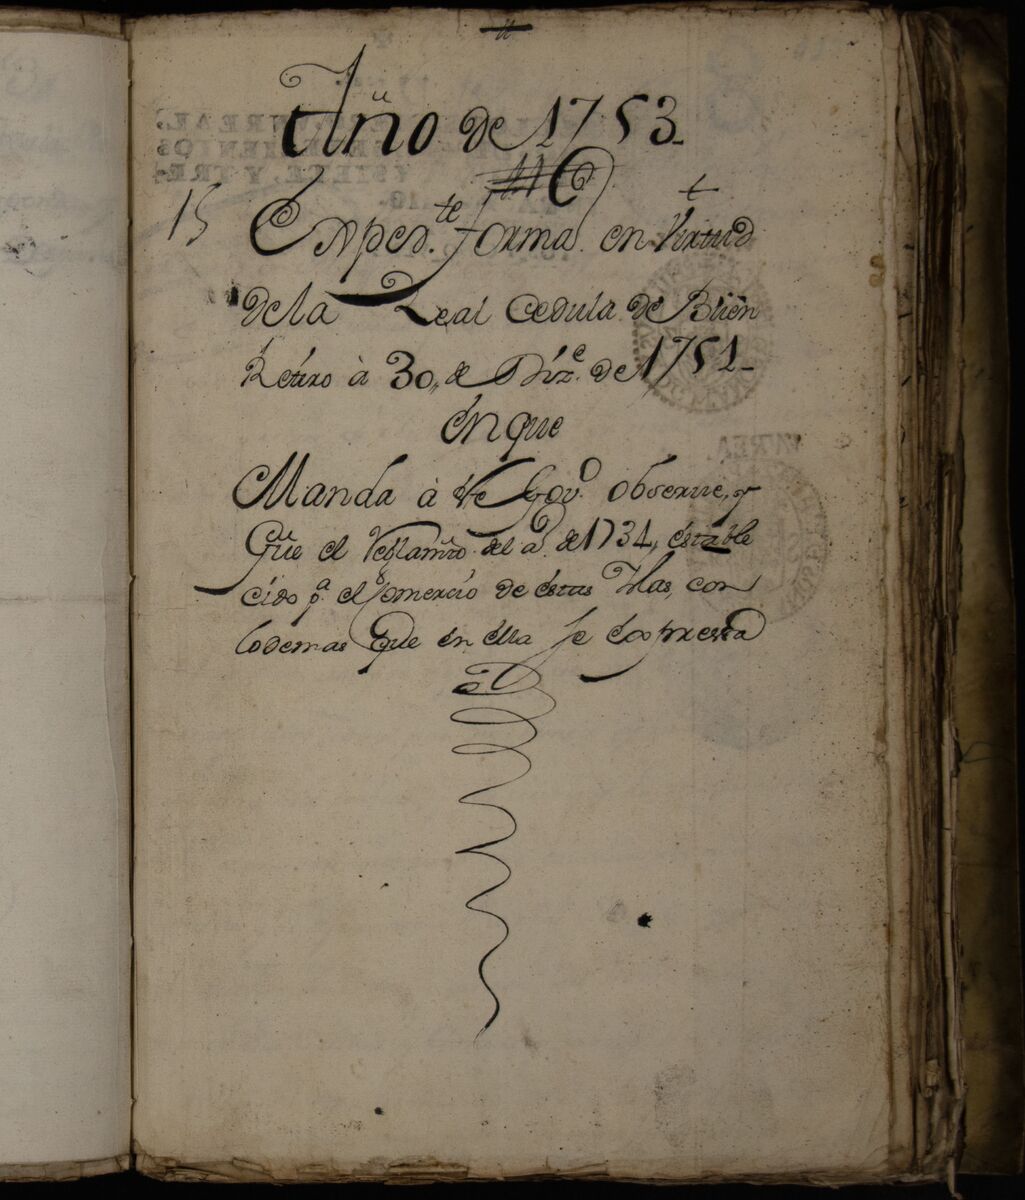 Año de 1753
15
Exped.te forma en Virtud
de la Real Cedula de Buen
Retiro à 30,, de Diz.e de 1751
én que
Manda à este Gov.o observe, y
Que el Reglam.to del a.o de 1734,, estable
cido p.a el Comercio de éstas Yslas, con
lo demas que én ella se éxpressa